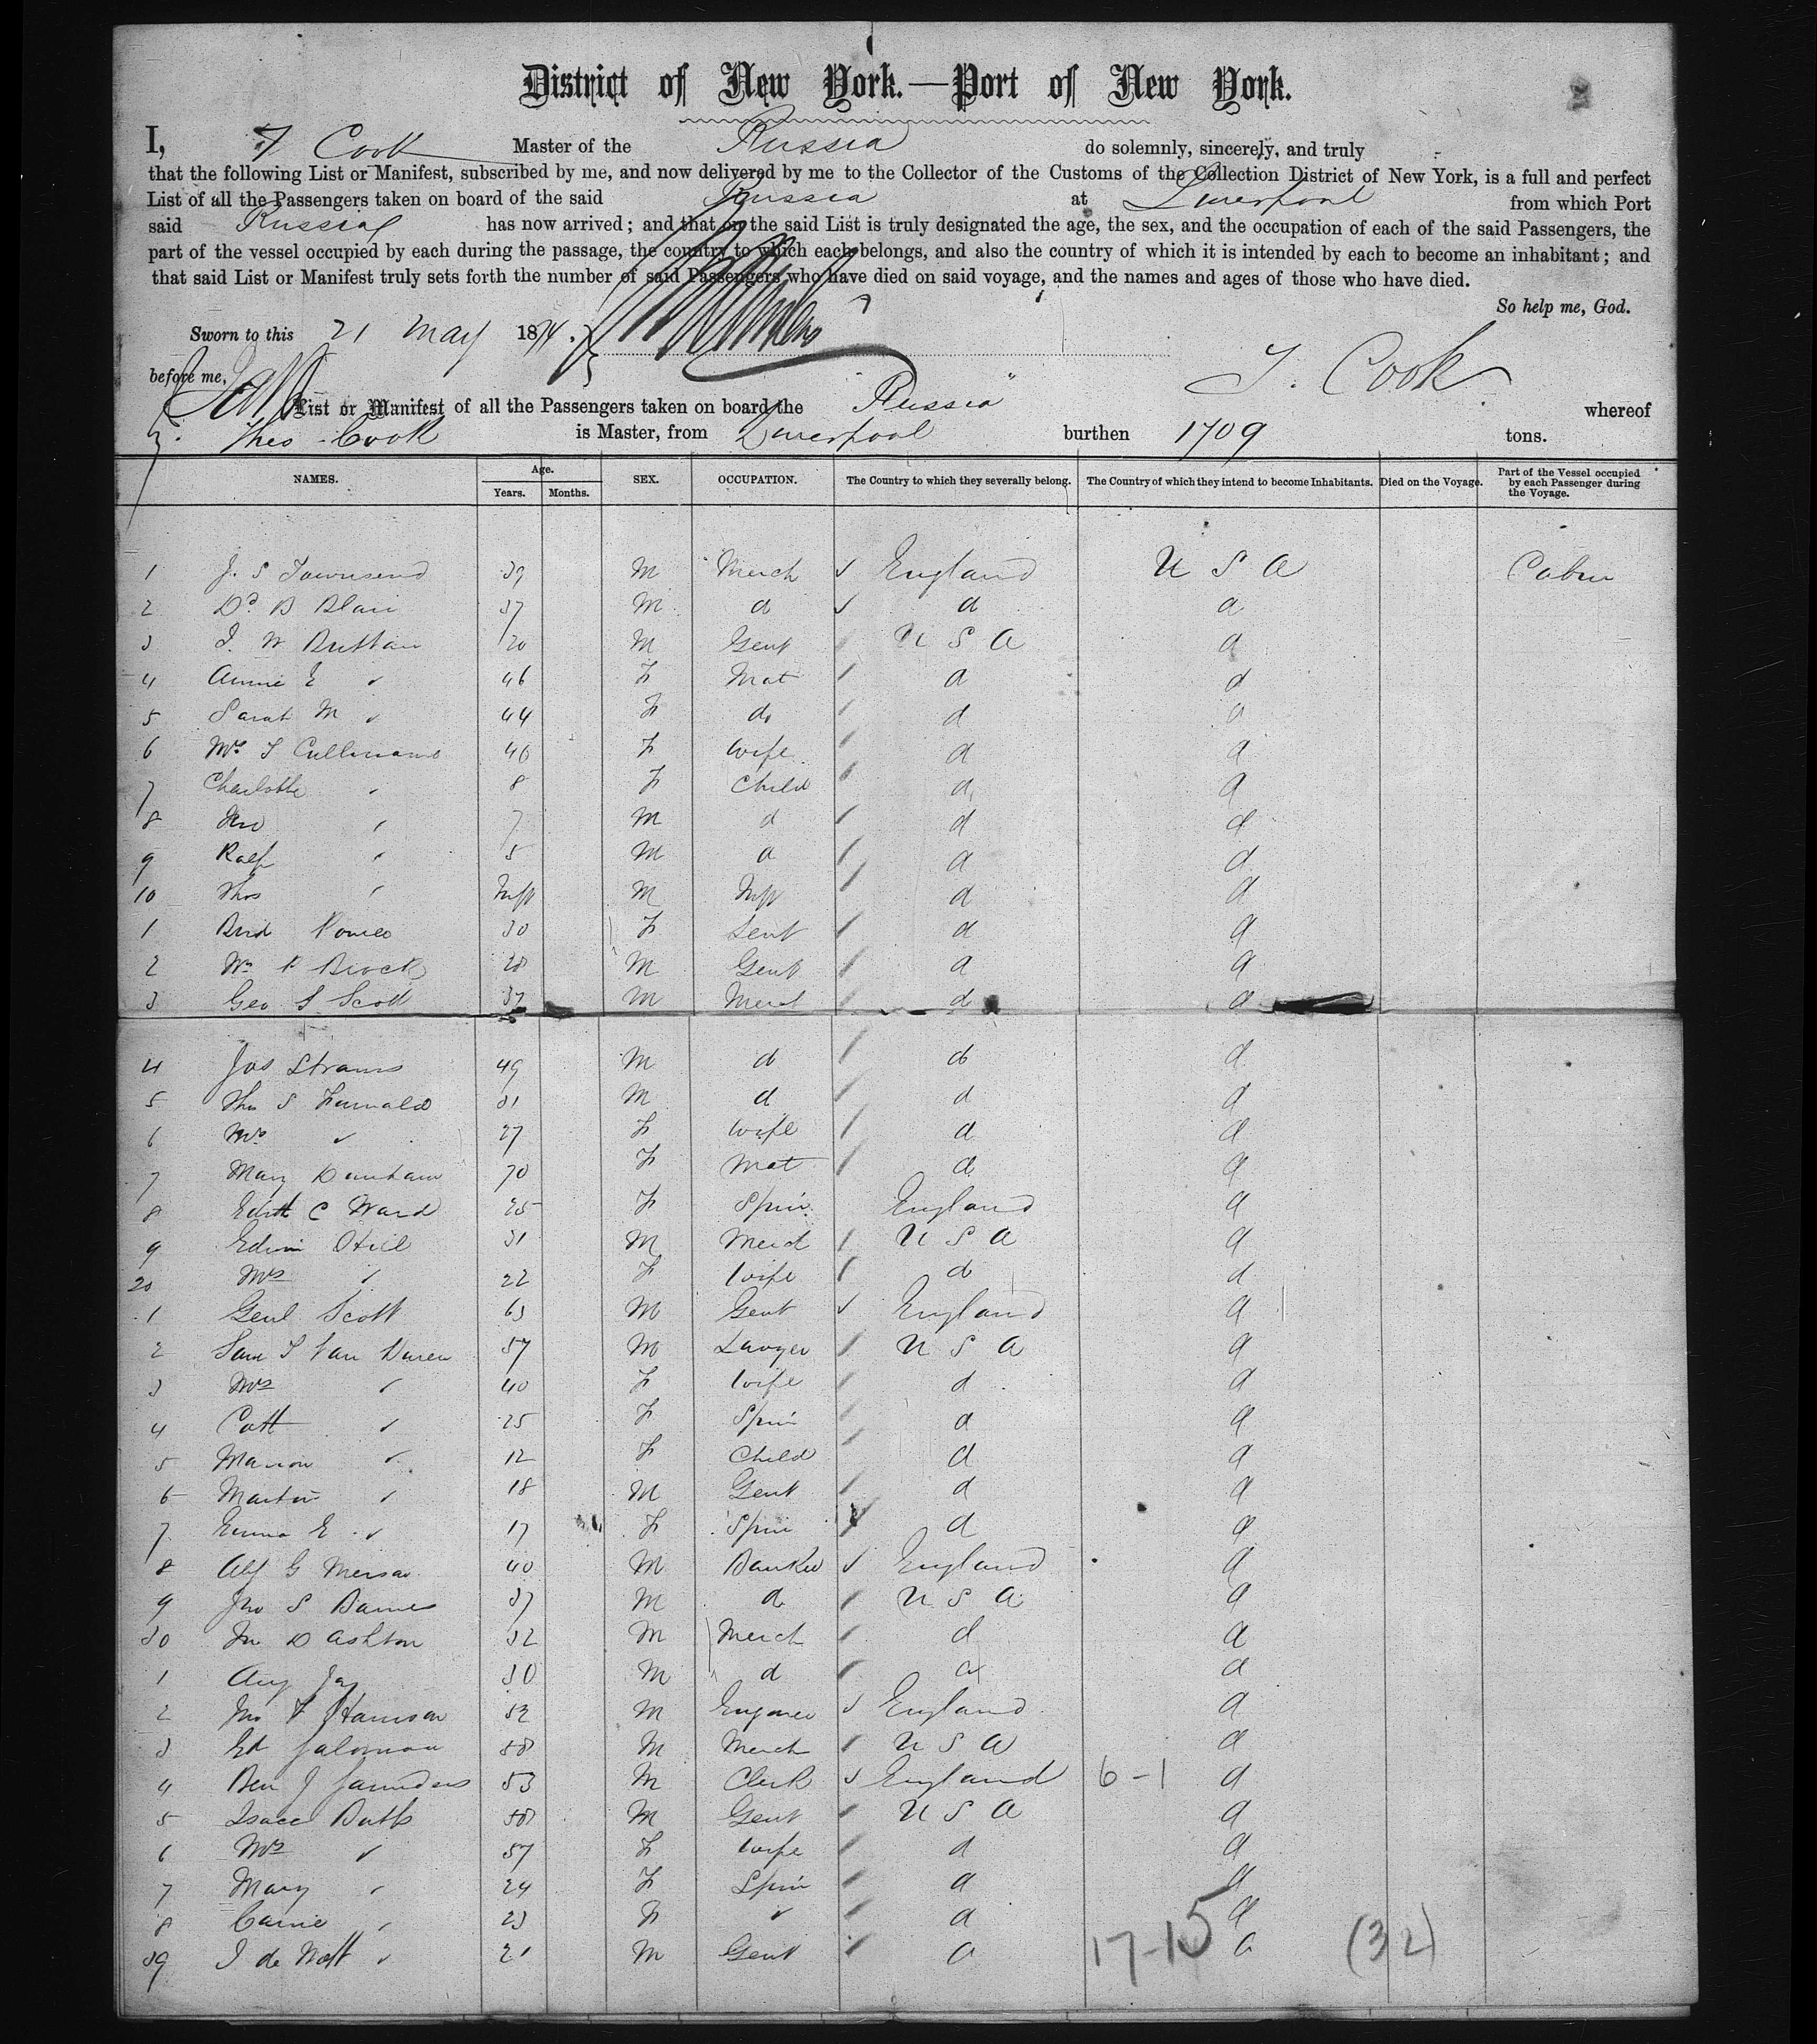 District of New York.—Port of New York.
I, T Cook Master of the Russia do solemnly, sincerely, and truly
that the following List or Manifest, subscribed by me, and now delivered by me to the Collector of the Customs of the Collection District of New York, is a full and perfect
List of all the Passengers taken on board of the said Russia at Liverpool from which Port
said Russia has now arrived; and that on the said List is truly designated the age, the sex, and the occupation of each of the said Passengers, the
part of the vessel occupied by each during the passage, the country to which each belongs, and also the country of which it is intended by each to become an inhabitant; and
that said List or Manifest truly sets forth the number of said Passengers who have died on said voyage, and the names and ages of those who have died.
So help me, God.
Sworn to this 21 May 1874.
before me, T. Cook
List or Manifest of all the Passengers taken on board the "Russia" whereof
Theo Cook is Master, from Liverpool burthen 1709 tons.
NAMES. Age. Years. Months. SEX. OCCUPATION. The Country to which they severally belong. The Country of which they intend to become Inhabitants. Died on the Voyage. Part of the Vessel occupied by each Passenger during the Voyage.
1 J. S Townsend 39 M Merch England U S A Cabin
2 Dd. B Blair 37 M d d d
3 W 20 M Gent U S A d
4 Annie E " 46 F Mat d d
5 Sarah M " 44 F do d d
6 Mrs 40 F Wife d d
7 Charlotte " 8 F Child d d
8 Jno " 7 M d d d
9 Ralf " 5 M d d d
10 Thos " Inft M Inft d d
1 Bird 30 F d d
2 Wm Brock 28 M Gent d d
3 Geo S Scott 37 M Merch d d
4 Jos Strauss 49 M d d d
5 Thos S Furnald 31 M d d d
6 Mrs " 27 F Wife d d
7 Mary Dunham 70 F Mat d d
8 Edith C Ward 25 F Spin England d
9 Edwin Hill 31 M Merch U S A d
20 Mrs " 22 F Wife d d
1 Genl Scott 63 M Gent England d
2 Sam Van Duren 57 M Lawyer U S A d
3 Mrs " 40 F Wife d d
4 Cath " 25 F Spin d d
5 Marion " 12 F Child d d
6 Martin " 18 M Gent d d
7 Emma E " 17 F Spin d d
8 Alf G 40 M Banker England d
9 Jno S Barnes 37 M d U S A d
30 Jn D Ashton 32 M Merch d d
1 Aug Jay 30 M d d d
2 Jno Harrison 52 M Enginee England d
3 Ed Salomon 58 M Merch U S A d
4 Ben J Saunders 53 M Clerk England 6-1 d
5 Isaac Butts 58 M Gent U S A d
6 Mrs " 57 F Wife d d
7 Mary " 24 F Spin d d
8 Carrie " 23 F " d d
39 de Witt " 21 M Gent d 17-15 d (32)